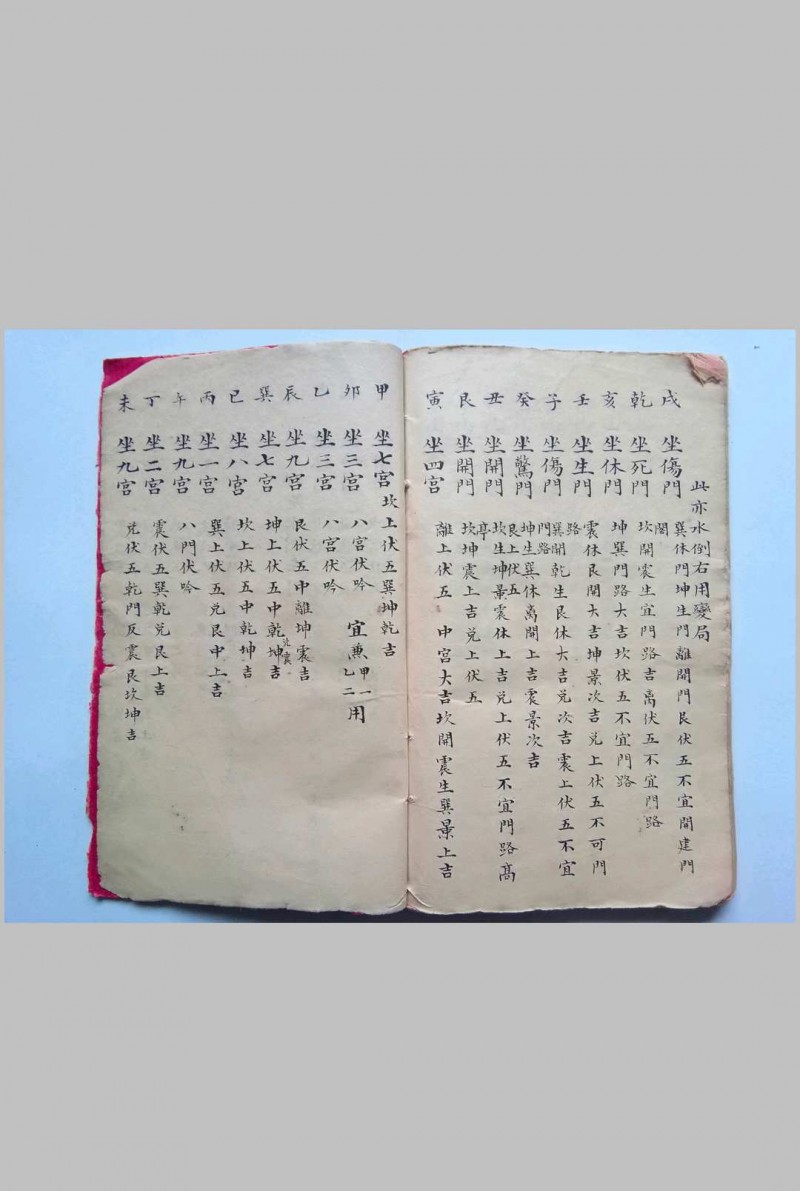 此亦水倒右用變局
戌 坐傷門 巽休門坤生門離開門艮伏五不宜開建門
闕
乾 坐死門 坎開震生宜門路吉离伏五不宜門路
亥 坐休門 坤巽門路大吉坎伏五不宜門路
壬 坐生門 震休艮開大吉坤景次吉兑上伏五不可門
路
子 坐傷門 巽開乾生艮休大吉兑次吉震上伏五不宜
門路
癸 坐驚門 坤生巽休离開上吉震景次吉
艮上伏五
丑 坐開門 坎生坤景震休上吉兑上伏五不宜門路高
亭
艮 坐開門 坎坤震上吉兑上伏五
寅 坐四宫 離上伏五 中宫大吉坎開震生巽景上吉
甲 坐七宫 坎上伏五巽坤乾吉
卯 坐三宫 八宫伏吟 宜兼甲一乙二用
乙 坐三宫 八宫伏吟
辰 坐九宫 艮伏五中離坤震吉
巽 坐七宫 坤上伏五中乾坤吉兑震
巳 坐八宫 坎上伏五中乾坤吉
丙 坐一宫 巽上伏五兑艮中上吉
午 坐九宫 八門伏吟
丁 坐二宫 震伏五巽乾兑艮上吉
未 坐九宫 兑伏五乾門反震艮坎坤吉